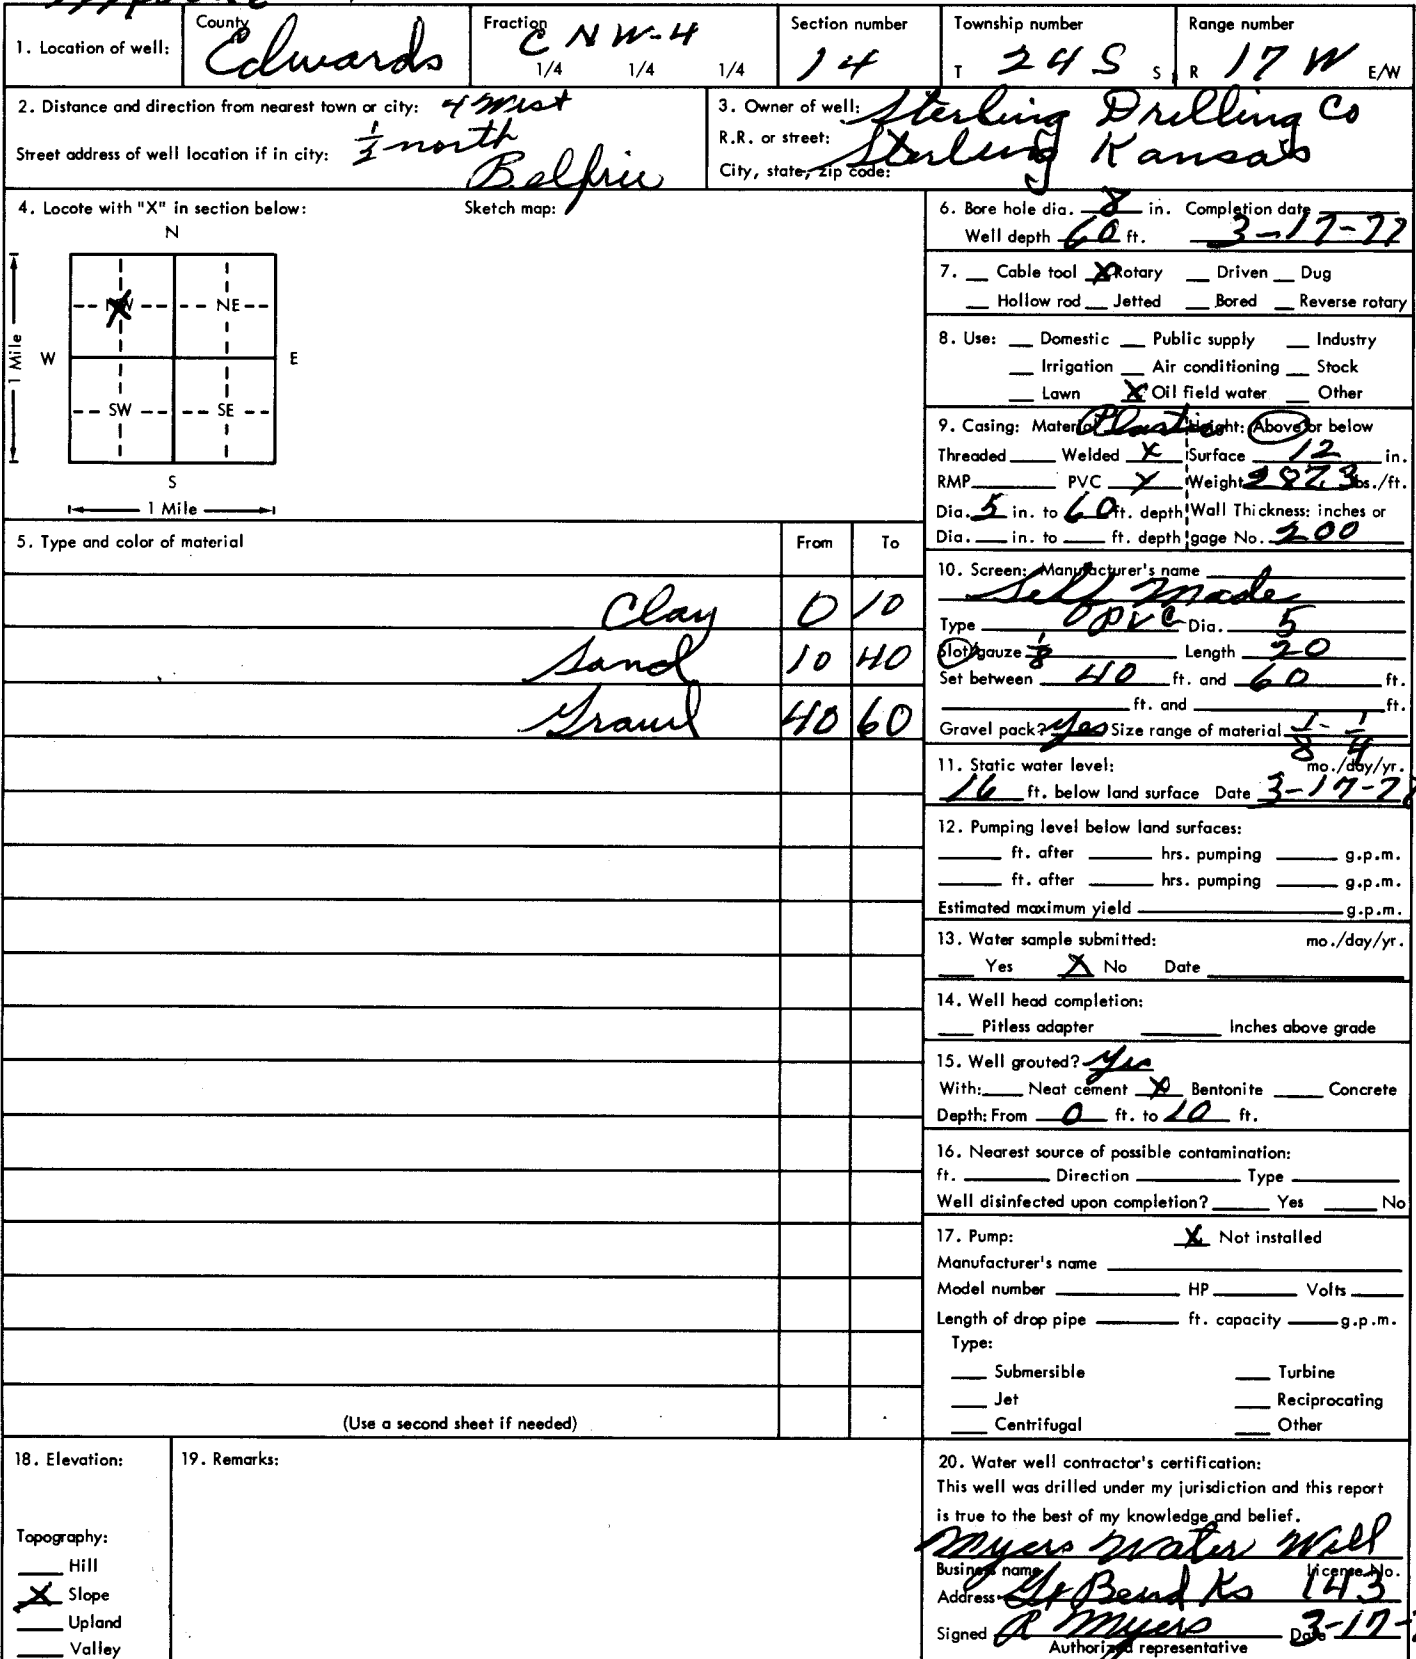 1. Location of well:
County
Edwards
Fraction
C NW-4
1/4 1/4 1/4
Section number
14
Township number
T 24 S S
Range number
R 17 W E/W
2. Distance and direction from nearest town or city: 4 West
1/2 north
Street address of well location if in city:
3. Owner of well: Sterling Drilling Co
R.R. or street:
Sterling Kansas
City, state, zip code:
4. Locote with "X" in section below:
Sketch map:
N
NW NE
W E
1 Mile
SW SE
S
1 Mile
5. Type and color of material From To
Clay 0 10
Sand 10 40
Gravel 40 60
(Use a second sheet if needed)
6. Bore hole dia. 8 in. Completion date
Well depth 60 ft. 3-17-77
7. __ Cable tool X Rotary __ Driven __ Dug
__ Hollow rod __ Jetted __ Bored __ Reverse rotary
8. Use: __ Domestic __ Public supply __ Industry
__ Irrigation __ Air conditioning __ Stock
__ Lawn X Oil field water __ Other
9. Casing: Material Plastic Height: Above or below
Threaded ____ Welded X Surface 12 in.
RMP ____ PVC X Weight 2873 lbs./ft.
Dia. 5 in. to 60 ft. depth Wall Thickness: inches or
Dia. ___ in. to ___ ft. depth gage No. 200
10. Screen: Manufacturer's name
Self Made
Type PVC Dia. 5
Slot/gauze 1/8 Length 20
Set between 40 ft. and 60 ft.
____ ft. and ____ ft.
Gravel pack? Yes Size range of material 1/8 - 1/4
11. Static water level: mo./day/yr.
16 ft. below land surface Date 3-17-78
12. Pumping level below land surfaces:
____ ft. after ____ hrs. pumping ____ g.p.m.
____ ft. after ____ hrs. pumping ____ g.p.m.
Estimated maximum yield ____ g.p.m.
13. Water sample submitted: mo./day/yr.
__ Yes X No Date ____
14. Well head completion:
__ Pitless adapter ____ Inches above grade
15. Well grouted? Yes
With: __ Neat cement X Bentonite __ Concrete
Depth: From 0 ft. to 10 ft.
16. Nearest source of possible contamination:
ft. ____ Direction ____ Type ____
Well disinfected upon completion? ____ Yes ____ No
17. Pump: X Not installed
Manufacturer's name ____
Model number ____ HP ____ Volts ____
Length of drop pipe ____ ft. capacity ____ g.p.m.
Type:
__ Submersible __ Turbine
__ Jet __ Reciprocating
__ Centrifugal __ Other
18. Elevation:
Topography:
__ Hill
X Slope
__ Upland
__ Valley
19. Remarks:
20. Water well contractor's certification:
This well was drilled under my jurisdiction and this report
is true to the best of my knowledge and belief.
Myers Water Well
Business name License No.
Address Gt Bend Ks 143
Signed R Myers Date 3-17-
Authorized representative